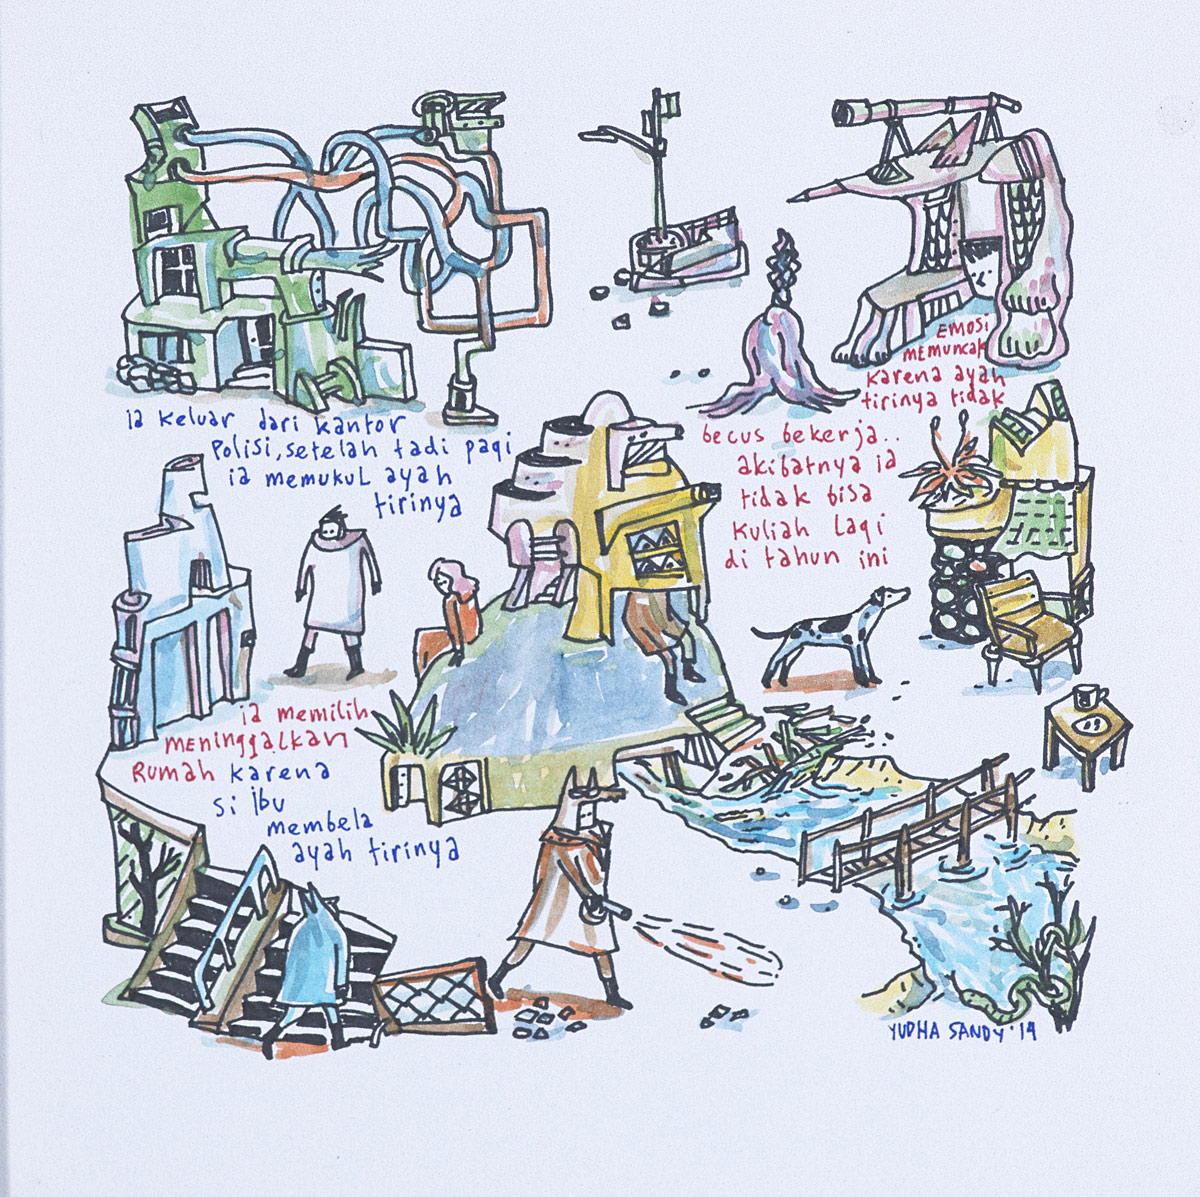 ia keluar dari kantor
Polisi, setelah tadi pagi
ia memukul ayah
tirinya
EMOSi
MEMUNCAK
Karena ayah
tirinya tidak
becus bekerja..
akibatnya ia
tidak bisa
Kuliah Lagi
di tahun ini
ia memiliH
MENINGGALKAN
RUMAH Karena
si ibu
membela
ayah tirinya
YUDHA SANDY '14